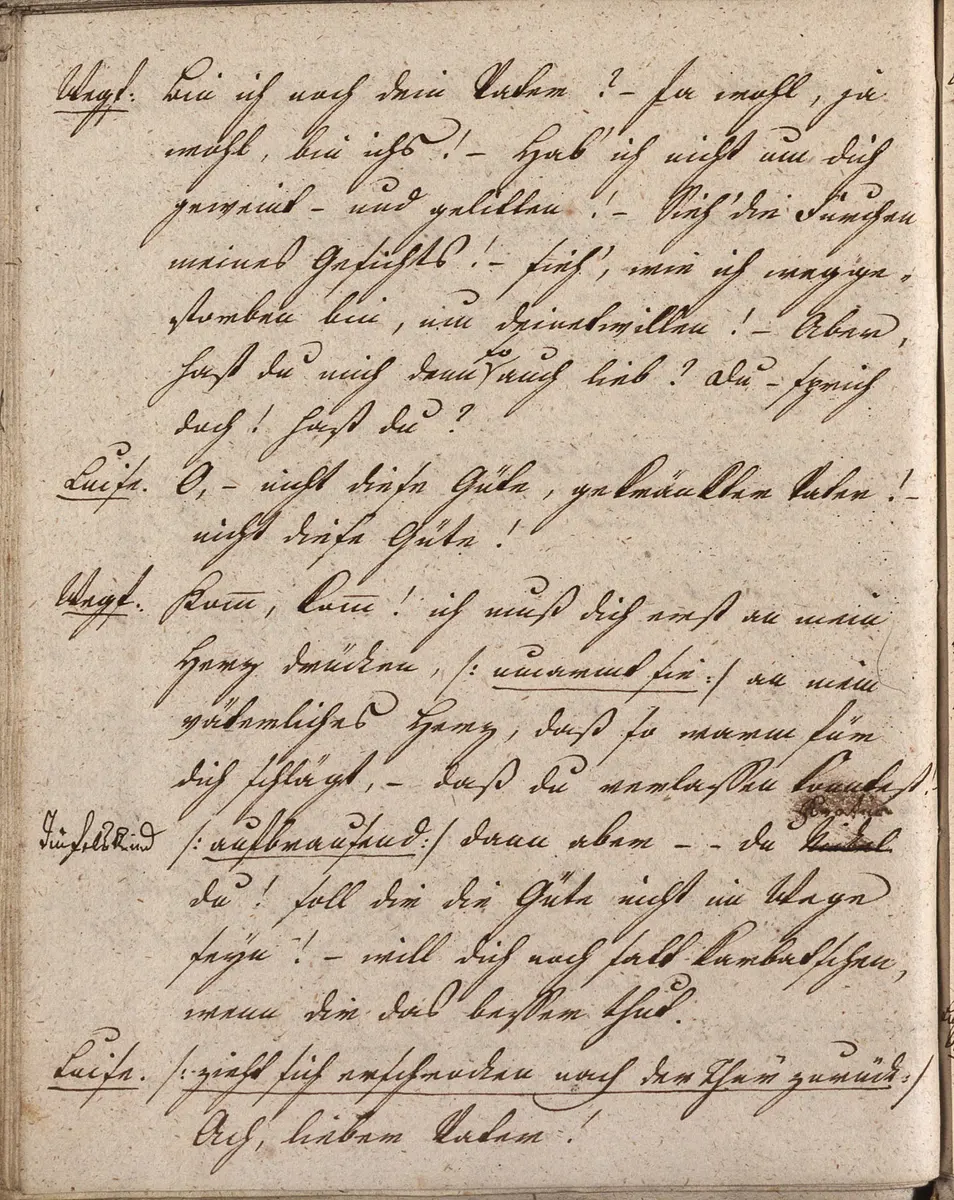 Wegf: Bin ich noch dein Vater? – Ja wohl, ja
wohl, bin ichs! – Hab' ich nicht um dich
geweint – und gelitten! – Sieh' die Furchen
meines Gesichts! – sieh', wie ich wegge-
storben bin, um deinetwillen! – Aber,
hast du mich denn so auch lieb? Du – sprich
doch! hast du?
Luise. O, – nicht diese Güte, gekränkter Vater! –
nicht diese Güte!
Wegf: Kom̄, kom̄! ich muß dich erst an mein
Herz drücken, /: umarmt sie :/ an mein
väterliches Herz, daß so warm für
dich schlägt, – daß du verlassen konntest! –
Teufelskind /: aufbrausend :/ dann aber – – du
du! soll dir die Güte nicht im Wege
seyn! – will dich noch satt karbatschen,
wenn dir das besser thut.
Luise. /: zieht sich erschrocken nach der Thür zurück :/
Ach, lieber Vater!